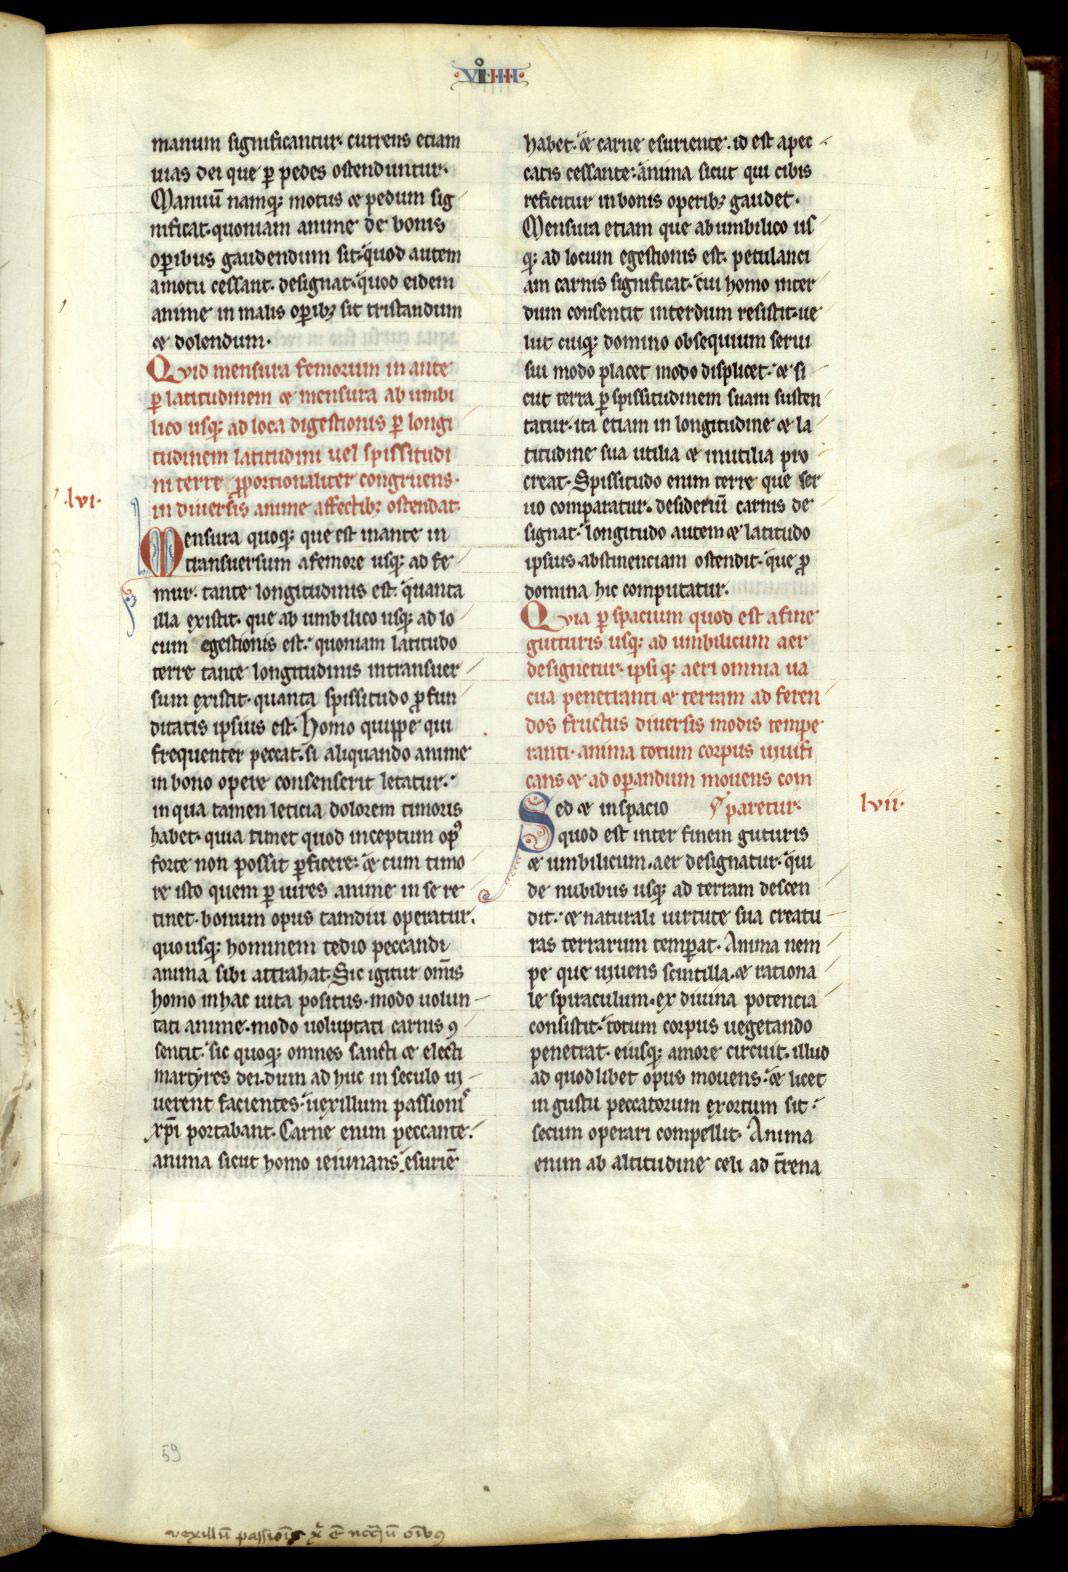 ·viiii·
manum significantur· currens etiam
uias dei que ꝑ pedes ostenduntur·
Manuū namqꝫ motus ⁊ pedum sig
nificat· quoniam anime de bonis
oꝑibus gaudendum sit· quod autem
a motu cessant· designat· quod eidem
anime in malis oꝑibꝫ sit tristandum
⁊ dolendum·
Quid mensura femorum in ante
ꝑ latitudinem ⁊ mensura ab umbi
lico usqꝫ ad loca digestionis ꝑ longi
tudinem latitudini uel spissitudi
ni terre ꝓportionaliter congruens·
·lvi·
in diuersis anime affectibꝫ ostendat·
Mensura quoqꝫ que est in ante in
transuersum a femore usqꝫ ad fe
mur· tante longitudinis est· quanta
illa existit· que ab umbilico usqꝫ ad lo
cum egestionis est· quoniam latitudo
terre tante longitudinis in transuer
sum existit· quanta spissitudo ꝓfun
ditatis ipsius est· Homo quippe qui
frequenter peccat· si aliquando anime
in bono opere consenserit letatur·
in qua tamen leticia dolorem timoris
habet· quia timet quod inceptum opꝰ
forte non possit ꝑficere· ⁊ cum timo
re isto quem ꝑ uires anime in se re
tinet· bonum opus tamdiu operatur·
quousqꝫ hominem tedio peccandi
anima sibi attrahat· Sic igitur om̄is
homo in hac uita positus· modo uolun
tati anime· modo uoluptati carnis ꝯ
sentit· sic quoqꝫ omnes sancti ⁊ electi
martyres dei· dum ad huc in seculo ui
uerent facientes· uexillum passionis
xp̄i portabant· Carne enim peccante·
anima sicut homo ieiunans esuriē
habet· ⁊ carne esuriente· id est a pec
catis cessante· anima sicut qui cibis
reficitur in bonis operibꝫ gaudet·
Mensura etiam que ab umbilico us
qꝫ ad locum egestionis est· petulanci
am carnis significat· cui homo inter
dum consentit interdum resistit· ue
lut cuiqꝫ domino obsequium serui
sui modo placet modo displicet· ⁊ si
cut terra ꝑ spissitudinem suam susten
tatur· ita etiam in longitudine ⁊ la
titudine sua utilia ⁊ inutilia pro
creat· Spissitudo enim terre que ser
uo comparatur· desideriū carnis de
signat· longitudo autem ⁊ latitudo
ipsius abstinenciam ostendit· que ꝓ
domina hic computatur·
Quia ꝑ spacium quod est a fine
gutturis usqꝫ ad umbilicum aer
designetur· ipsi qꝫ aeri omnia ua
cua penetranti ⁊ terram ad feren
dos fructus diuersis modis tempe
ranti· anima totum corpus uiuifi
cans ⁊ ad oꝑandum mouens com
Sed ⁊ in spacio paretur·
lvii·
quod est inter finem guturis
⁊ umbilicum· aer designatur· qui
de nubibus usqꝫ ad terram descen
dit· ⁊ naturali uirtute sua creatu
ras terrarum temꝑat· Anima nem
pe que uiuens scintilla· ⁊ rationa
le spiraculum· ex diuina potencia
consistit· totum corpus uegetando
penetrat· eiusqꝫ amore circuit· illud
ad quodlibet opus mouens· ⁊ licet
in gustu peccatorum exortum sit·
secum operari compellit· Anima
enim ab altitudine celi ad t̄rena
59
vexillū passiōis